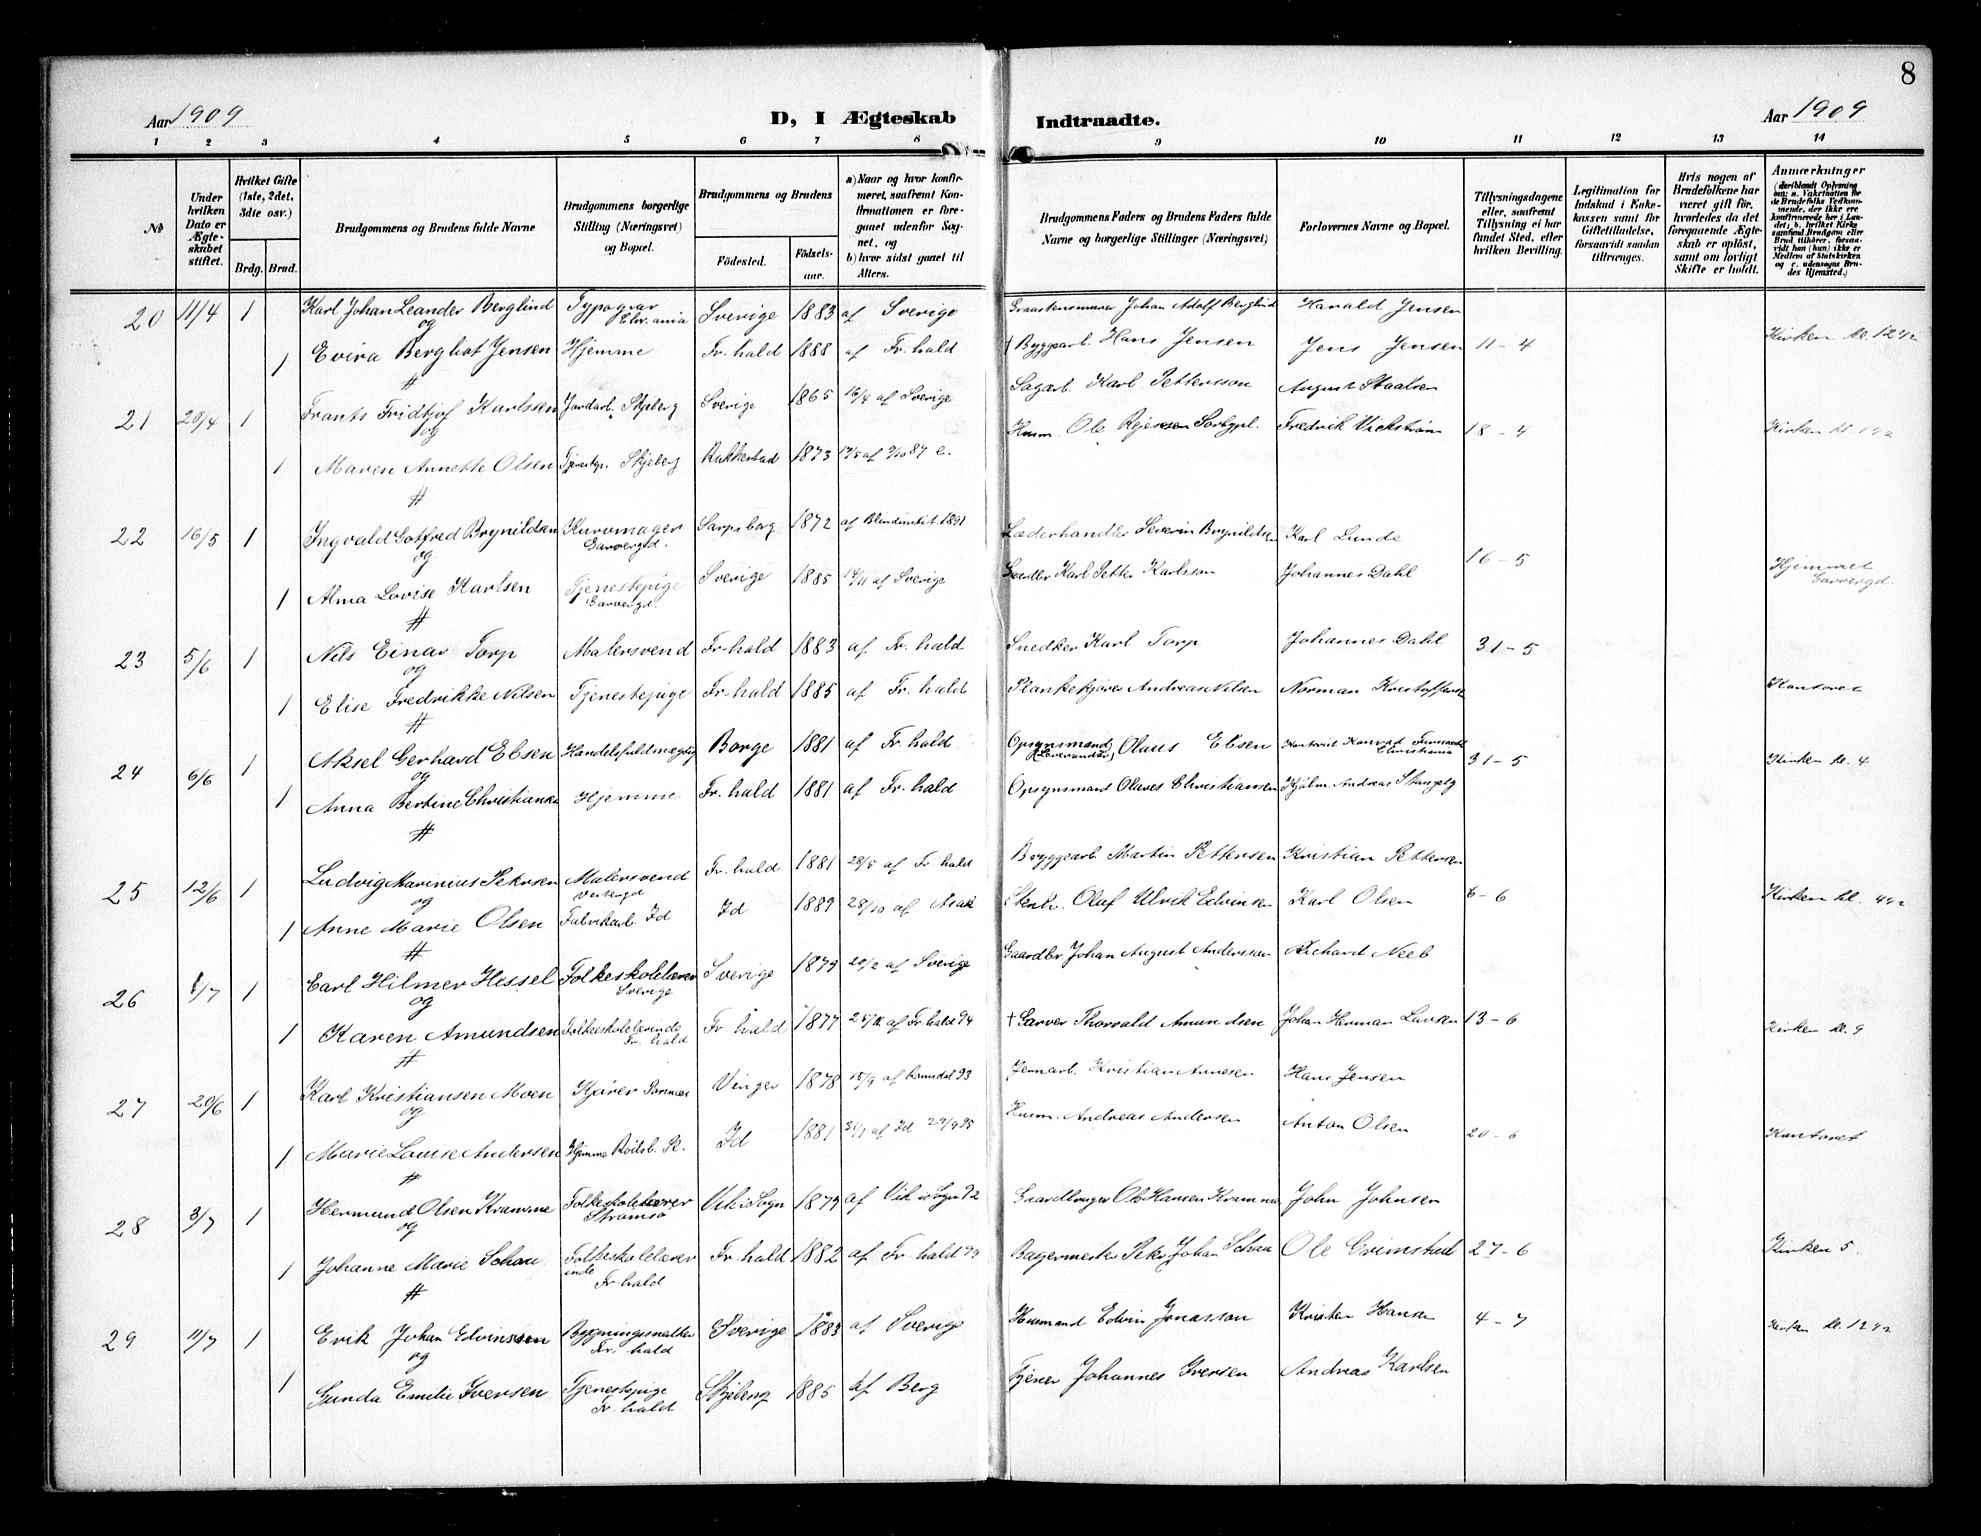 8
Aar 1909
D, I Ægteskab
Indtraadte.
Aar 1909
1 2 3 4 5 6 7 8 9 10 11 12 13 14
No
Under hvilken Dato er Ægteskabet stiftet.
Hvilket Gifte (1ste, 2det, 3dte osv.)
Brdg. Brud.
Brudgommens og Brudens fulde Navne
Brudgommens borgerlige Stilling (Næringsvei) og Bopæl.
Brudgommens og Brudens
Fødested. Fødselsaar.
a) Naar og hvor konfirmeret, saafremt Konfirmationen er foregaaet udenfor Sognet, og
b) hvor sidst gaaet til Alters.
Brudgommens Faders og Brudens Faders fulde Navne og borgerlige Stillinger (Næringsvei)
Forlovernes Navne og Bopæl.
Tillysningsdagene eller, saafremt Tillysning ei har fundet Sted, efter hvilken Bevilling.
Legitimation for Indskud i Enkekassen samt for Giftetilladelse, forsaavidt saadan tiltrænges.
Hvis nogen af Brudefolkene har været gift før, hvorledes da det foregaaende Ægteskab er opløst, samt om lovligt Skifte er holdt.
Anmærkninger
(deriblandt Oplysning om: a. Vakcination for de Brudefolks Vedkommende, der ikke ere konfirmerede her i Landet; b. hvilket Kirkesamfund Brudgom eller Brud tilhører, forsaavidt han (hun) ikke er Medlem af Statskirken og c. udensogns Brudes Hjemsted.)
20 11/4 1 Karl Johan Leander Berglind Typograf Chr.ania Sverige 1883 af Sverige Johan Adolf Berglind Harald Jensen
og
1 Evira Berghof Jensen Hjemme Fr. hald 1888 af Fr. hald † Byggearb. Hans Jensen Jens Jensen 11-4 Kirken kl. 12 1/2
#
21 20/4 1 Frants Fridtjof Karlsen Jordarb. Skjeberg Sverige 1865 16/4 af Sverige Sagarb. Karl Pettersson August Staalsen
og
1 Maren Annette Olsen Tjenestp. Skjeberg Rakkestad 1873 af 87 Husm. Ole Fredrik Vickstrøm 18-4 Kirken kl.
#
22 16/5 1 Ingvald Gotfred Brynildsen Kurvmager Garvergd. Sarpsborg 1872 af Blindinstit. 1891 Læderhandler Severin Brynildsen Karl Lunde
og
1 Alma Lovise Karlsen Tjenestepige Garvergd. Sverige 1885 14/11 af Sverige Karl Petter Karlsson Johannes Dahl 16-5 Hjemmet Garvergd.
#
23 5/6 1 Nils Einar Torp Malersvend Fr. hald 1883 af Fr. hald Snedker Karl Torp Johannes Dahl 31-5
og
1 Elise Fredrikke Nilsen Tjenestepige Fr. hald 1885 af Fr. hald Plankekjører Andreas Nilsen Norman Kristoffersen Kontoret
#
24 6/6 1 Aksel Gerhard Ebsen Handelsfuldmægtig Borge 1881 af Fr. hald Opsynsmand Olaus Ebsen Konrad Christiania
og
1 Anna Bertine Christiansen Hjemme Fr. hald 1881 af Fr. hald Opsynsmand Olaves Christiansen Kjøbm. Andreas Stangebg 31-5 Kirken kl. 4
#
25 12/6 1 Ludvig Marinius Petersen Malersvend Fr. hald 1881 28/5 af Fr hald Bryggearb Martin Pettersen Kristian Pettersen
og
1 Anne Marie Olsen Fabrikarb. Id Id 1889 28/10 af Asak Stenh. Olaf Ulrik Edvinsen Karl Olsen 6-6 Kirken kl. 4 1/2
#
26 1/7 1 Carl Hilmer Hessel Folkeskolelærer Sverige Sverige 1879 20/2 af Sverige Gaardbr. Johan August Andersson Richard Neeb
og
1 Karen Amundsen Folkeskolelærinde Fr. hald Fr. hald 1877 af Fr. hald 94 † Garver Thorvald Amundsen Johan Herman Larsen 13-6 Kirken kl. 9
#
27 20/6 1 Karl Kristiansen Moen Kjører Vinger 1878 15/9 af Romsdal 93 Jernarb. Kristian Arnesen Hans Jensen
og
1 Marie Louise Andersen Hjemme Id 1881 af Id 29/9 95 Husm. Andreas Andersen Anton Olsen 20-6 Kontoret
#
28 3/7 1 Hermund Olsen Kramme Folkeskolelærer Strømsø Vik i Sogn 1879 af Vik i Sogn 92 Gaardbruger Ole Hansen Kramme John Johnsen
og
1 Johanne Marie Schau Folkeskolelærerinde Fr. hald Fr. hald 1882 af Fr. hald Bagermester Peter Johan Schau Ole Grimstad 27-6 Kirken 5
#
29 11/7 1 Erik Johan Edvinsson Fr. hald Sverige 1883 af Sverige Husmand Edvin Jonasson Kristen Hansen 4-7 Kirken kl. 12 1/2
og
1 Gunda Emilie Iversen Tjenestepige Fr. hald Skjeberg 1885 af Berg Tjener Johannes Iversen Andreas Karlsen